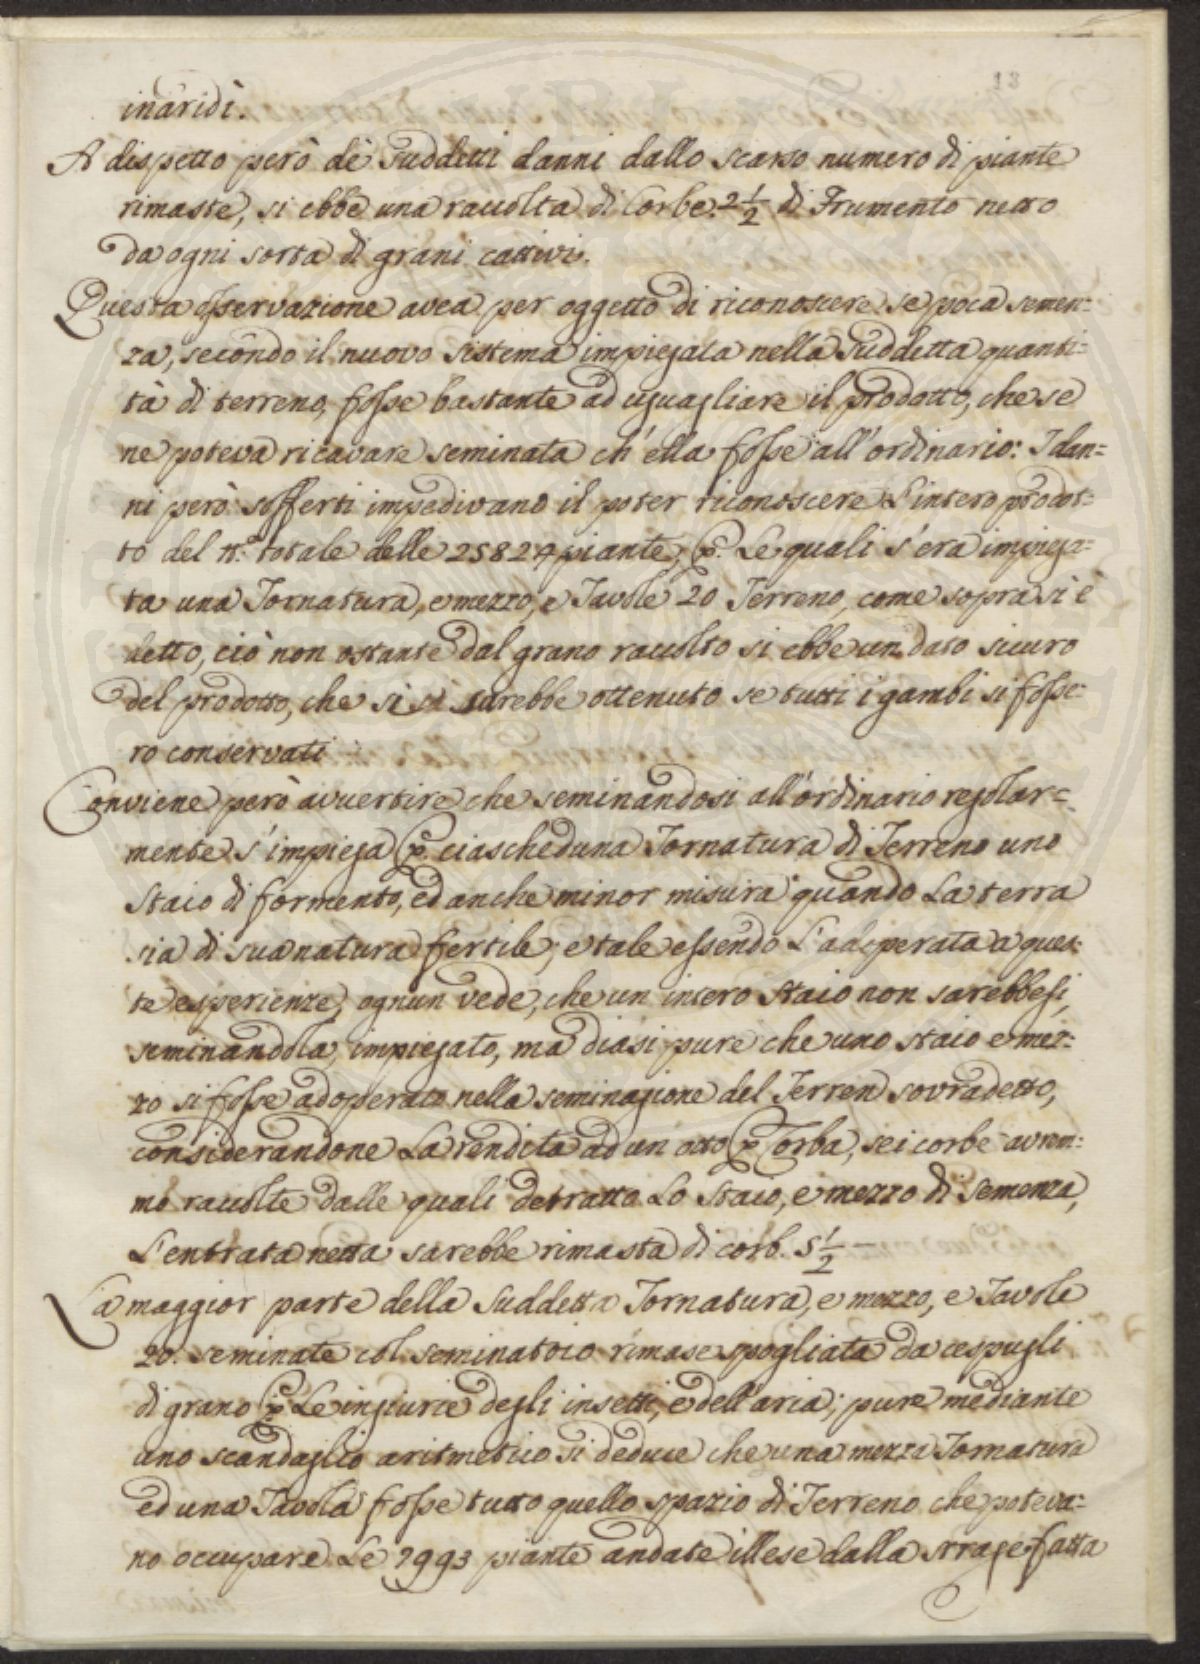 13
inaridì.
A dispetto però de' suddetti danni dallo scarso numero di piante
rimaste, si ebbe una raccolta di Corbe 2 1/2 di Frumento netto
da ogni sorta di grani cattivi.
Questa osservazione avea per oggetto di riconoscere se poca semen=
za, secondo il nuovo sistema impiegata nella suddetta quanti=
tà di terreno, fosse bastante ad uguagliare il prodotto, che se
ne poteva ricavare seminata ch'ella fosse all'ordinario: I dan=
ni però sofferti impedivano il poter riconoscere l'intero prodot=
to del n.º totale delle 25824 piante, p. le quali s'era impiega=
ta una Tornatura, e mezzo, e Tavole 20 Terreno, come sopra si è
detto, ciò non ostante dal grano raccolto si ebbe un dato sicuro
del prodotto, che si sarebbe ottenuto se tutti i gambi si fosse=
ro conservati
Conviene però avvertire che seminandosi all'ordinario regolar=
mente s'impiega p. ciascheduna Tornatura di Terreno uno
Staio di formento, ed anche minor misura quando la terra
sia di sua natura fertile; e tale essendo l'adoperata a ques=
te esperienze, ognun vede, che un intero Staio non sarebbesi,
seminandola, impiegato, ma diasi pure che uno staio e mez=
zo si fosse adoperato nella seminagione del Terren sovradetto,
considerandone la rendita ad un otto p. Corba, sei corbe avrem=
mo raccolte dalle quali detratto lo Staio, e mezzo di semenza,
l'entrata netta sarebbe rimasta di corb. 5 1/2 —
La maggior parte della suddetta Tornatura, e mezzo, e Tavole
20. seminate col seminatoio rimase spogliata da cespugli
di grano p. le ingiurie degli insetti, e dell'aria; pure mediante
uno scandaglio aritmetico si deduce che una mezza Tornatura
ed una Tavola fosse tutto quello spazio di Terreno che poteva=
no occupare le 7993 piante andate illese dalla strage fatta